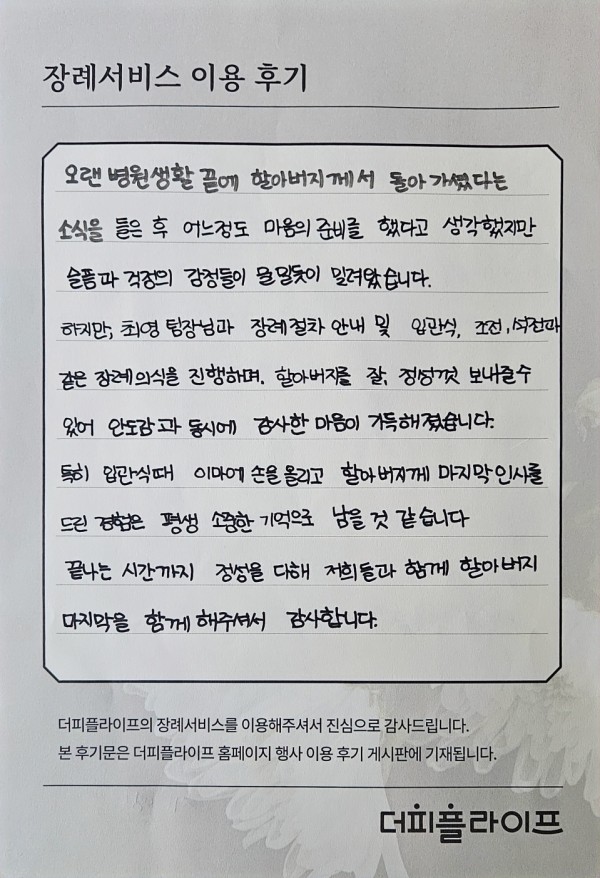 장례서비스 이용 후기
오랜 병원생활 끝에 할아버지께서 돌아가셨다는
소식을 들은 후 어느정도 마음의 준비를 했다고 생각했지만
슬픔과 걱정의 감정들이 물밀듯이 밀려왔습니다.
하지만, 최영 팀장님과 장례절차 안내 및 입관식, 조전, 석전과
같은 장례의식을 진행하며, 할아버지를 잘, 정성껏 보내줄수
있어 안도감과 동시에 감사한 마음이 가득해졌습니다.
특히 입관식때 이마에 손을 올리고 할아버지께 마지막인사를
드린 경험은 평생 소중한 기억으로 남을 것 같습니다
끝나는 시간까지 정성을 다해 저희들과 함께 할아버지
마지막을 함께 해주셔서 감사합니다.
더피플라이프의 장례서비스를 이용해주셔서 진심으로 감사드립니다.
본 후기문은 더피플라이프 홈페이지 행사 이용 후기 게시판에 기재됩니다.
더피플라이프